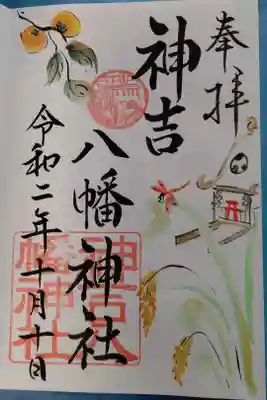 奉拝
神吉
八幡神社
令和二年十月十日
神吉八
幡神社